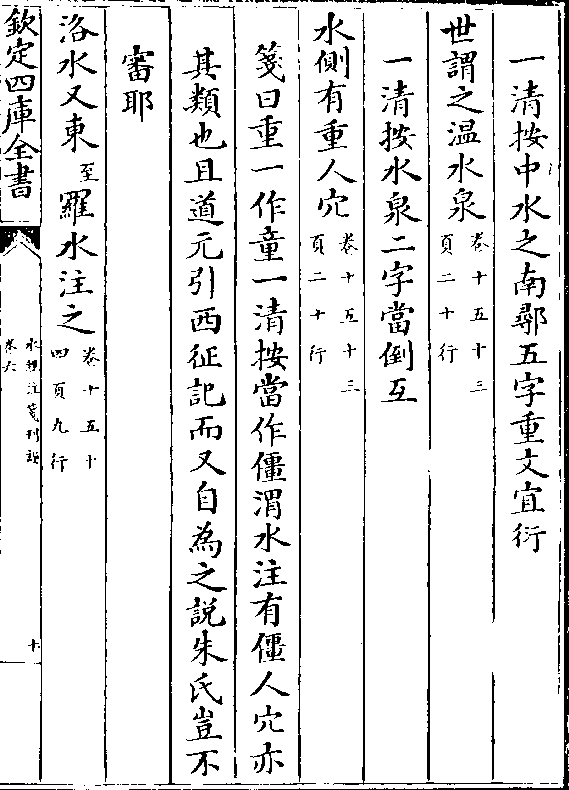 一清按中水之南鄩五字重文宜衍
世謂之温水泉卷十五十三頁二十行
一清按水泉二字當倒互
水側有重人穴卷十五十三頁二十行
箋曰重一作童一清按當作僵渭水注有僵人穴亦
其類也且道元引西征記而又自為之說朱氏豈不
審耶
洛水又東至羅水注之卷十五十四頁九行
欽定四庫全書
水經注箋刊誤
卷六
十